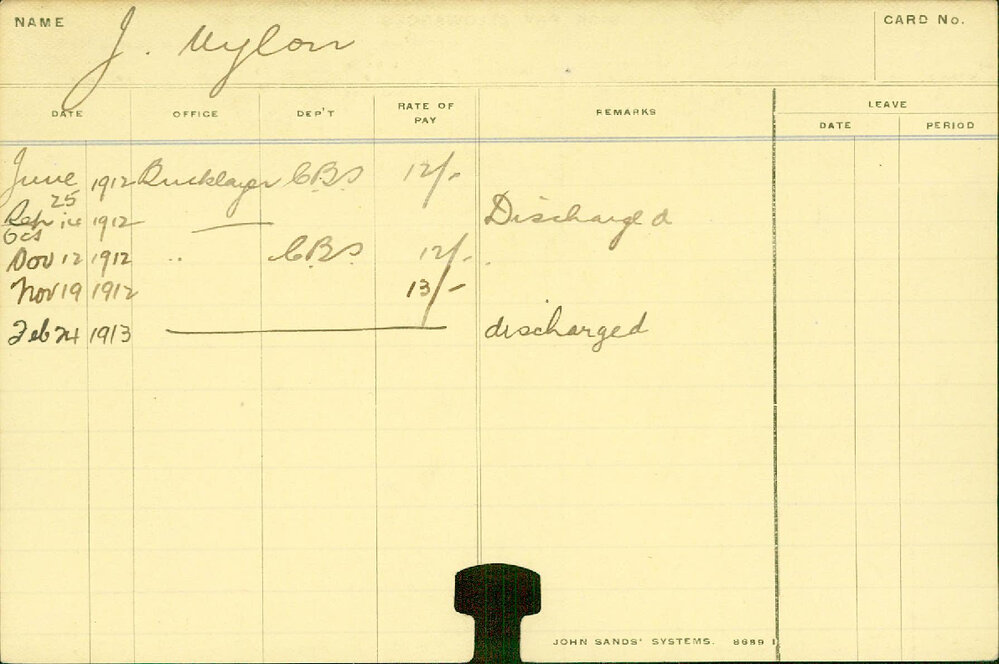 NAME J. Nylon CARD No.
DATE OFFICE DEP'T RATE OF PAY REMARKS LEAVE
DATE PERIOD
June 25 1912 Bricklayer C.B.S 12/-
Sep 14 1912 —— Discharged
Oct
Nov 12 1912 " C.B.S 12/-
Nov 19 1912 13/-
Feb 24 1913 —— discharged
JOHN SANDS' SYSTEMS. 8689